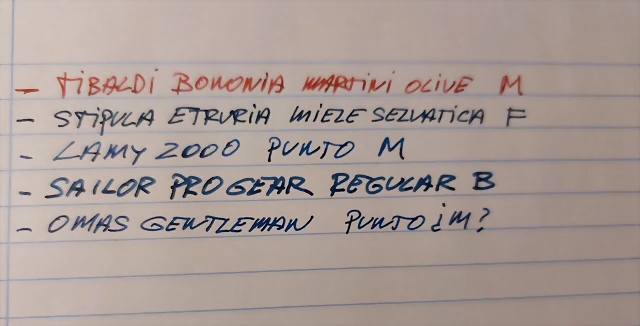 - TIBALDI BONONIA MARTINI OLIVE M
- STIPULA ETRURIA MIELE SELVATICA F
- LAMY 2000 PUNTO M
- SAILOR PRO GEAR REGULAR B
- OMAS GENTLEMAN PUNTO ¿M?